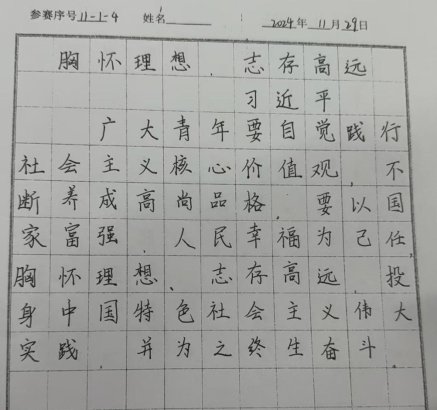 参赛序号 11-1-4 姓名 2024年 11月 29日
胸怀理想，志存高远
习近平
广大青年要自觉践行
社会主义核心价值观，不
断养成高尚品格，要以国
家富强、人民幸福为己任，
胸怀理想、志存高远，投
身中国特色社会主义伟大
实践，并为之终生奋斗．